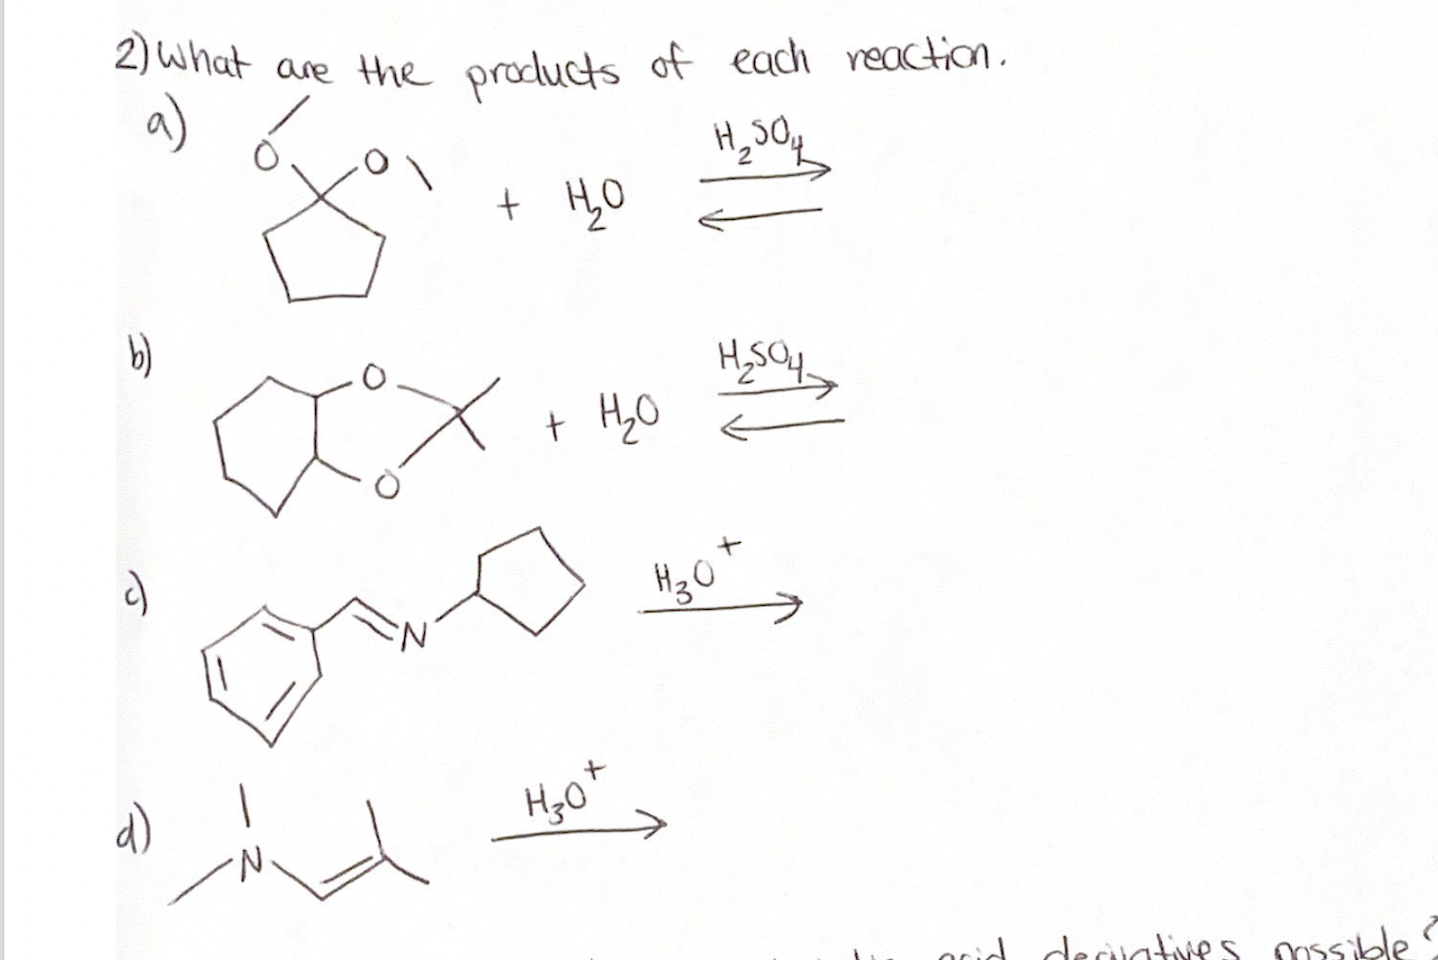 2) What are the products of each reaction.
a)
O O + H₂O H₂SO₄
b)
O O + H₂O H₂SO₄
c)
N H₃O⁺
d)
N H₃O⁺
acid derivatives possible?